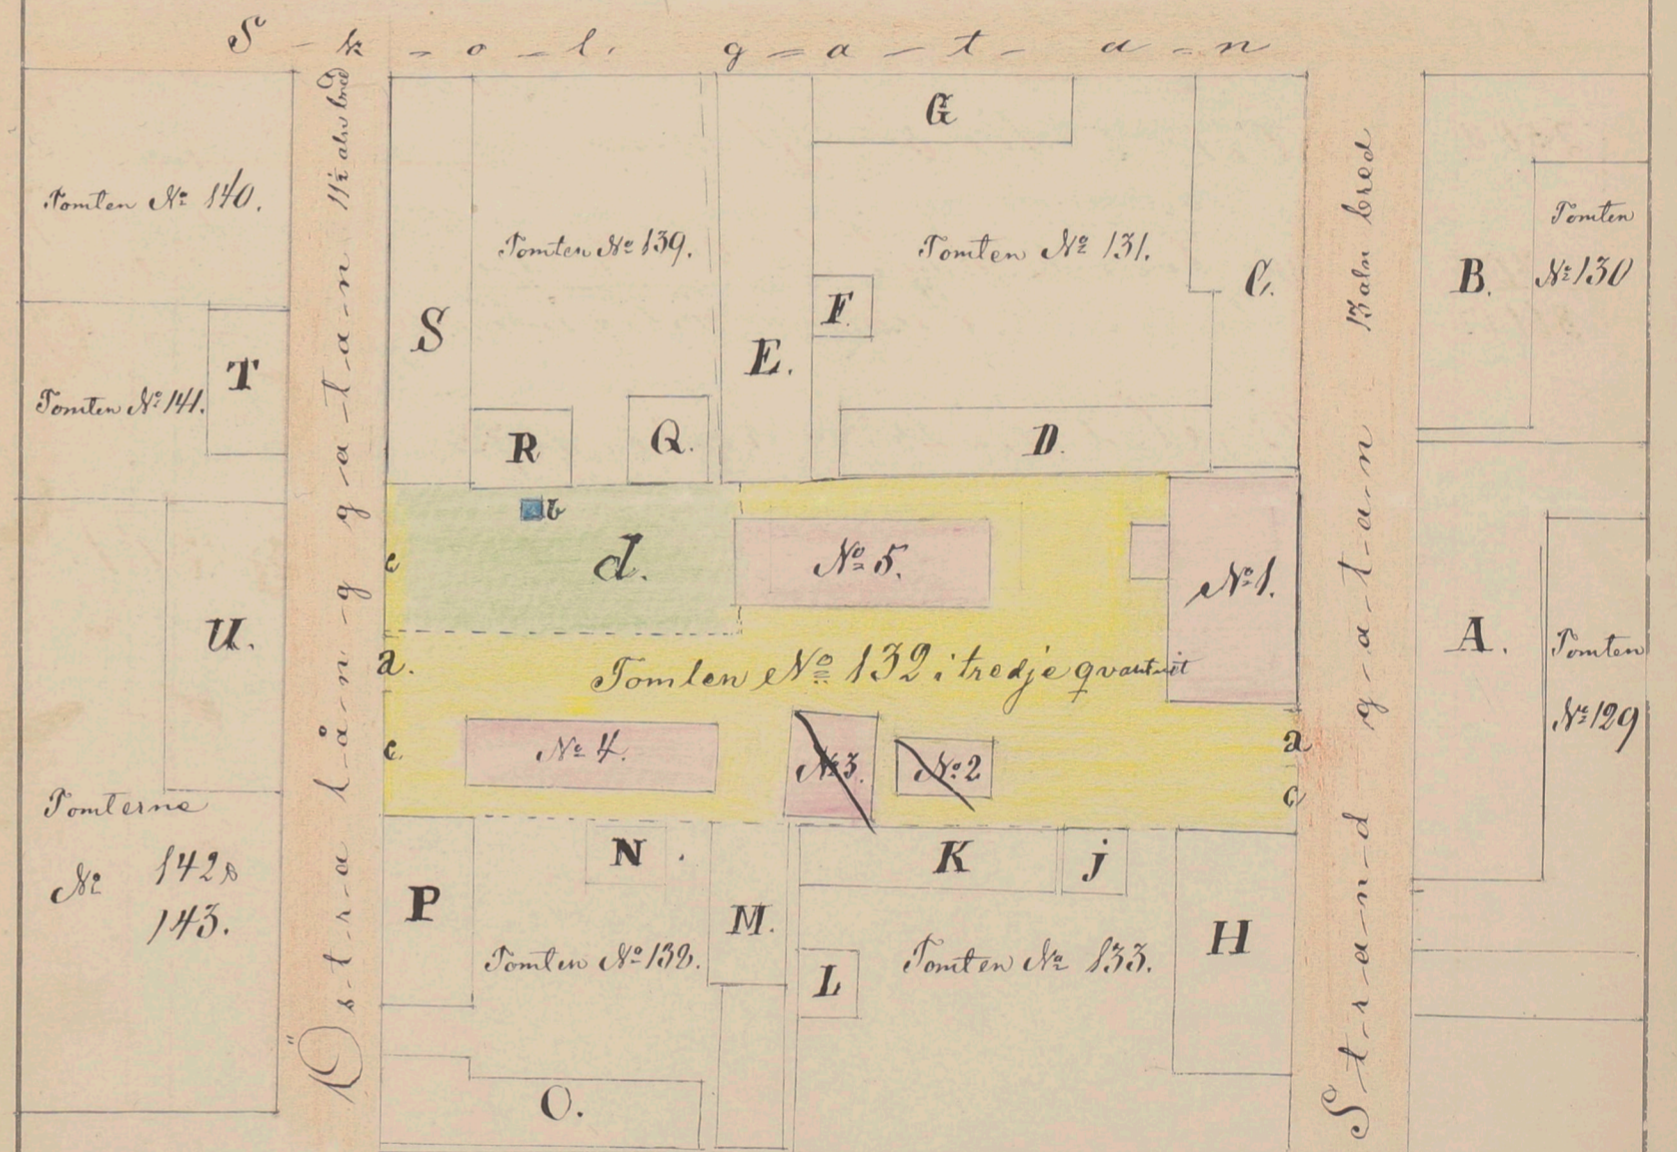 S-k-o-l-g-a-t-a-n
Östra långgatan 11½ aln bred
Strandgatan 13 aln bred
Tomten No 140.
Tomten No 141.
T
U.
Tomterne
No 142 &
143.
S
Tomten No 139.
R
Q.
E.
G
Tomten No 131.
F.
D.
C.
B.
Tomten
No 130
A.
Tomten
No 129
b
c
d.
No 5.
No 1.
a.
Tomten No 132 i tredje
c.
No 4.
No 3.
No 2
a
c
P
N
M.
Tomten No 138.
O.
K
j
L
Tomten No 133.
H